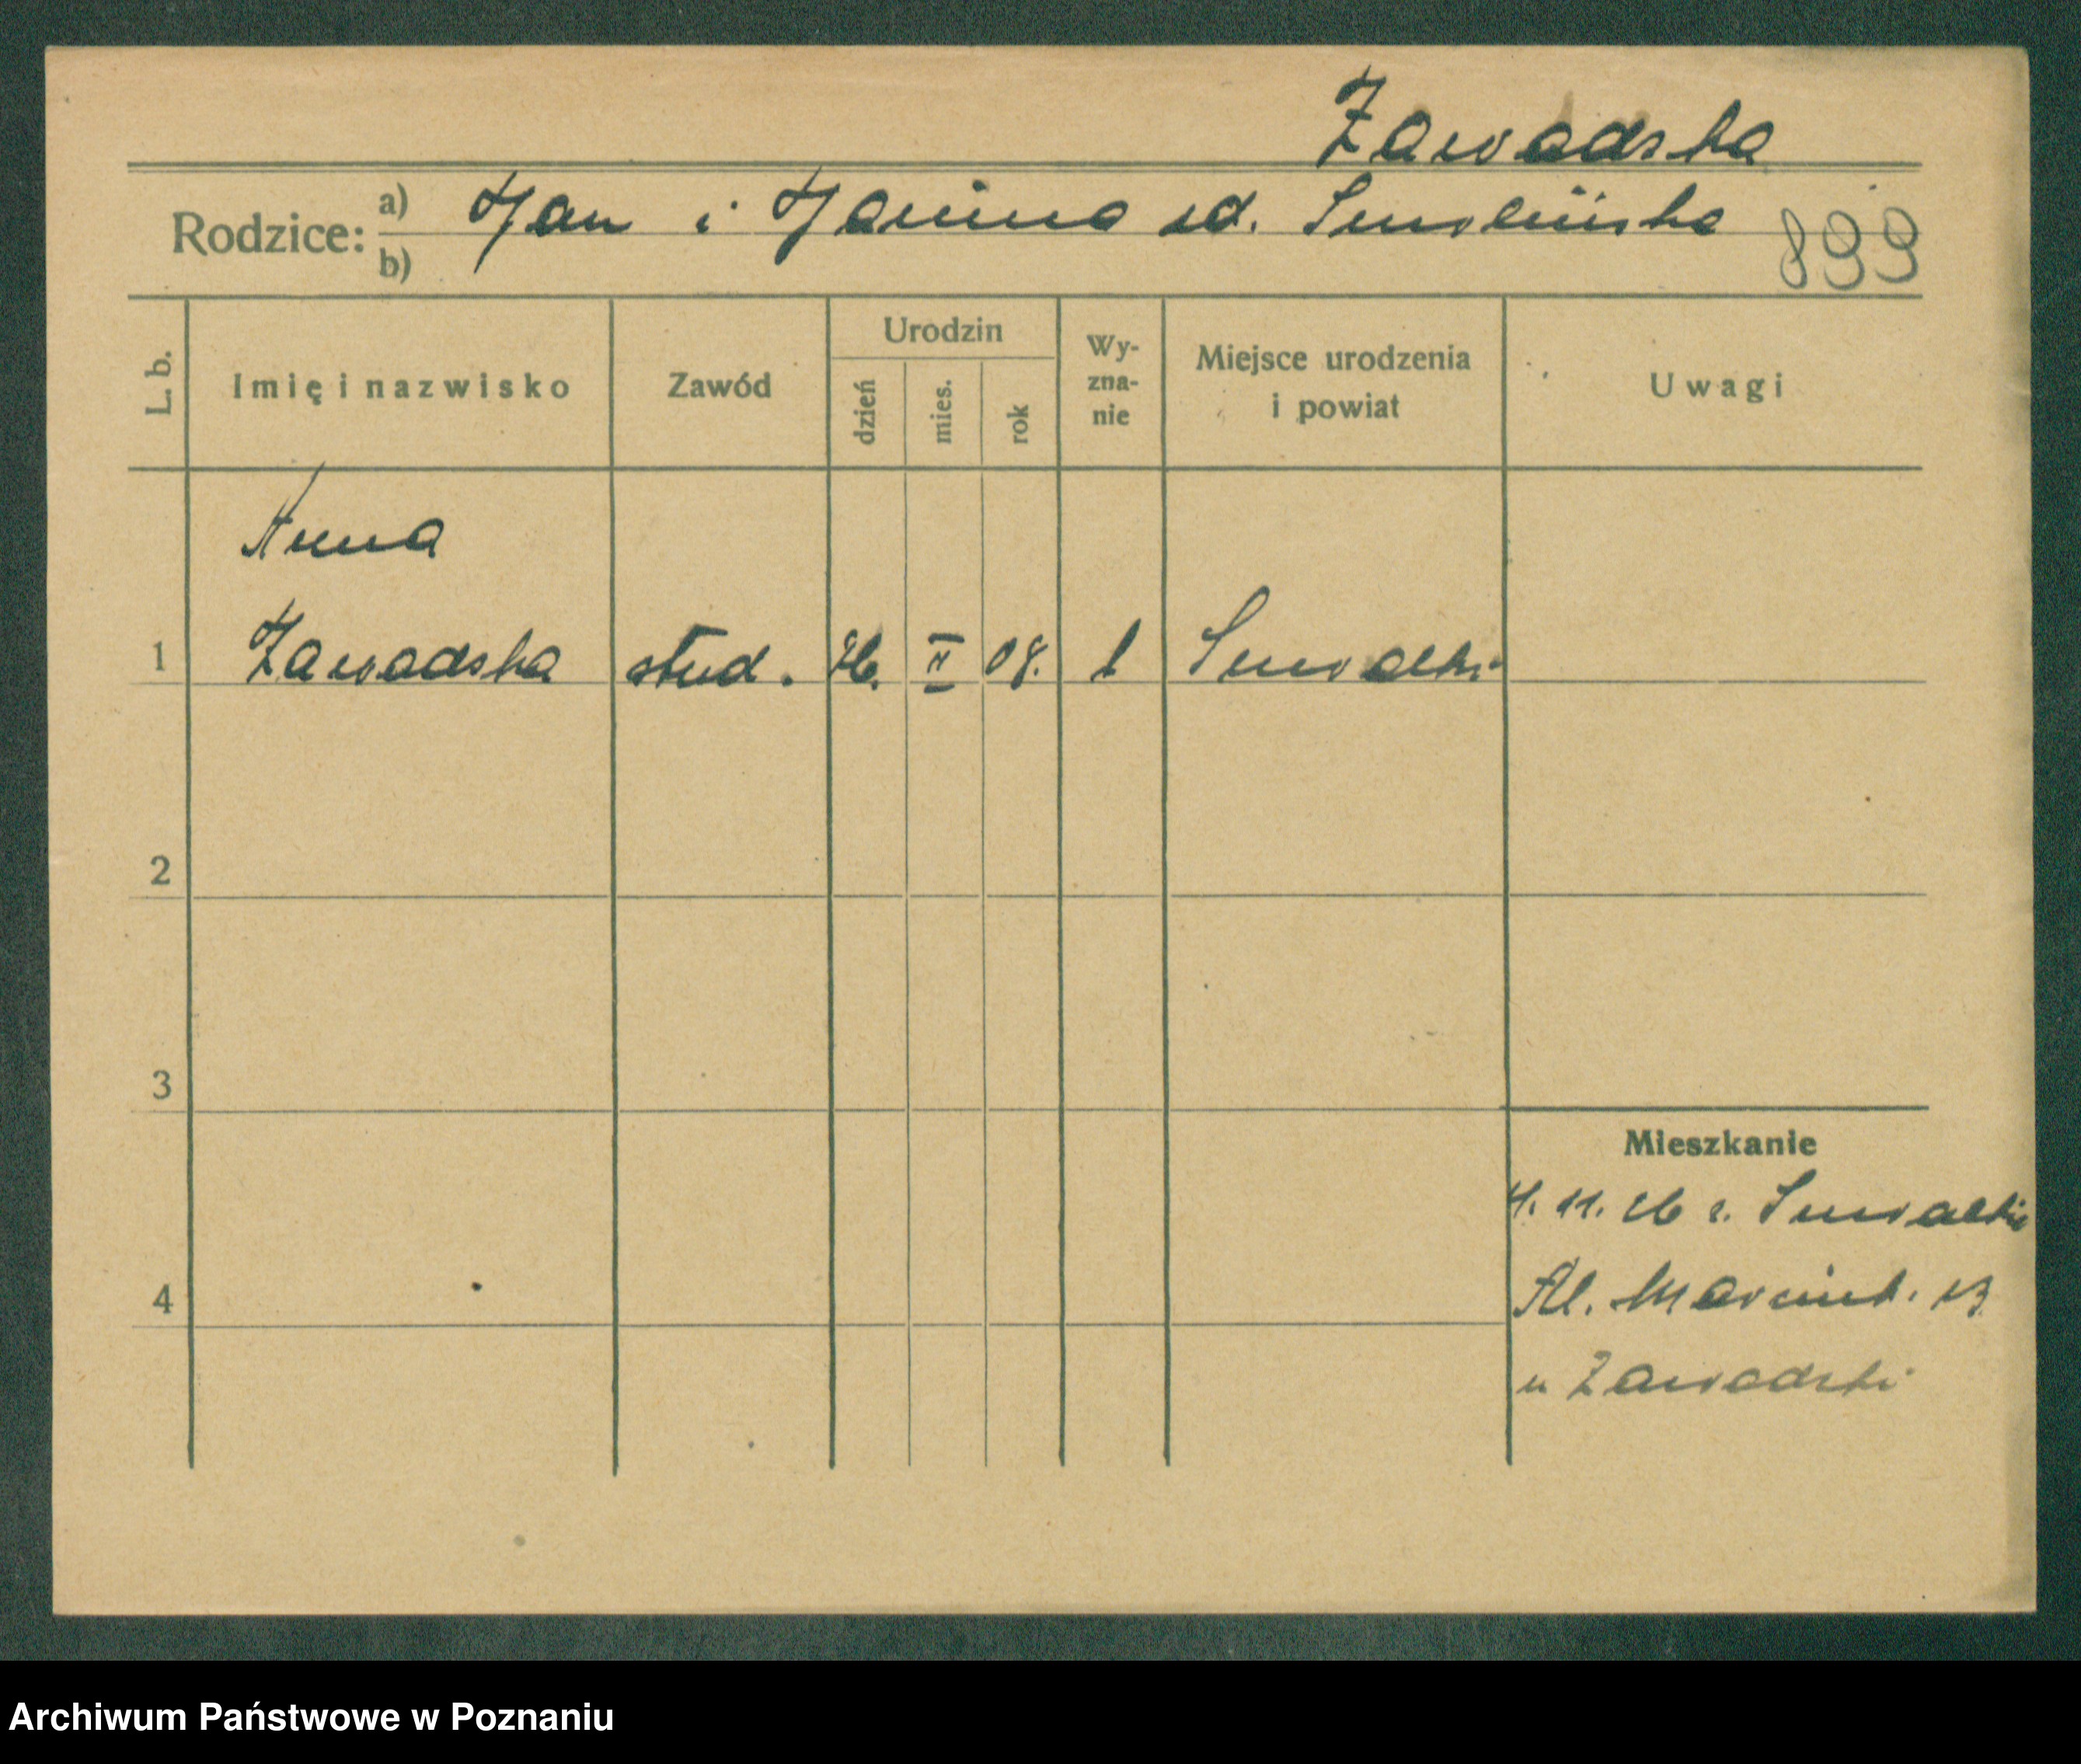 Zawadska
Rodzice: a) Jan i Janina zd. Smolińska
b)
899
L. b.
Imię i nazwisko
Zawód
Urodzin
dzień
mies.
rok
Wy-
zna-
nie
Miejsce urodzenia
i powiat
Uwagi
Anna
1 Zawadska stud. 26. II 08. k Suwałki
2
3
4
Mieszkanie
4. 11. 26 r. Suwałki
Al. Marcink. 13
u Zawadzki
Archiwum Państwowe w Poznaniu